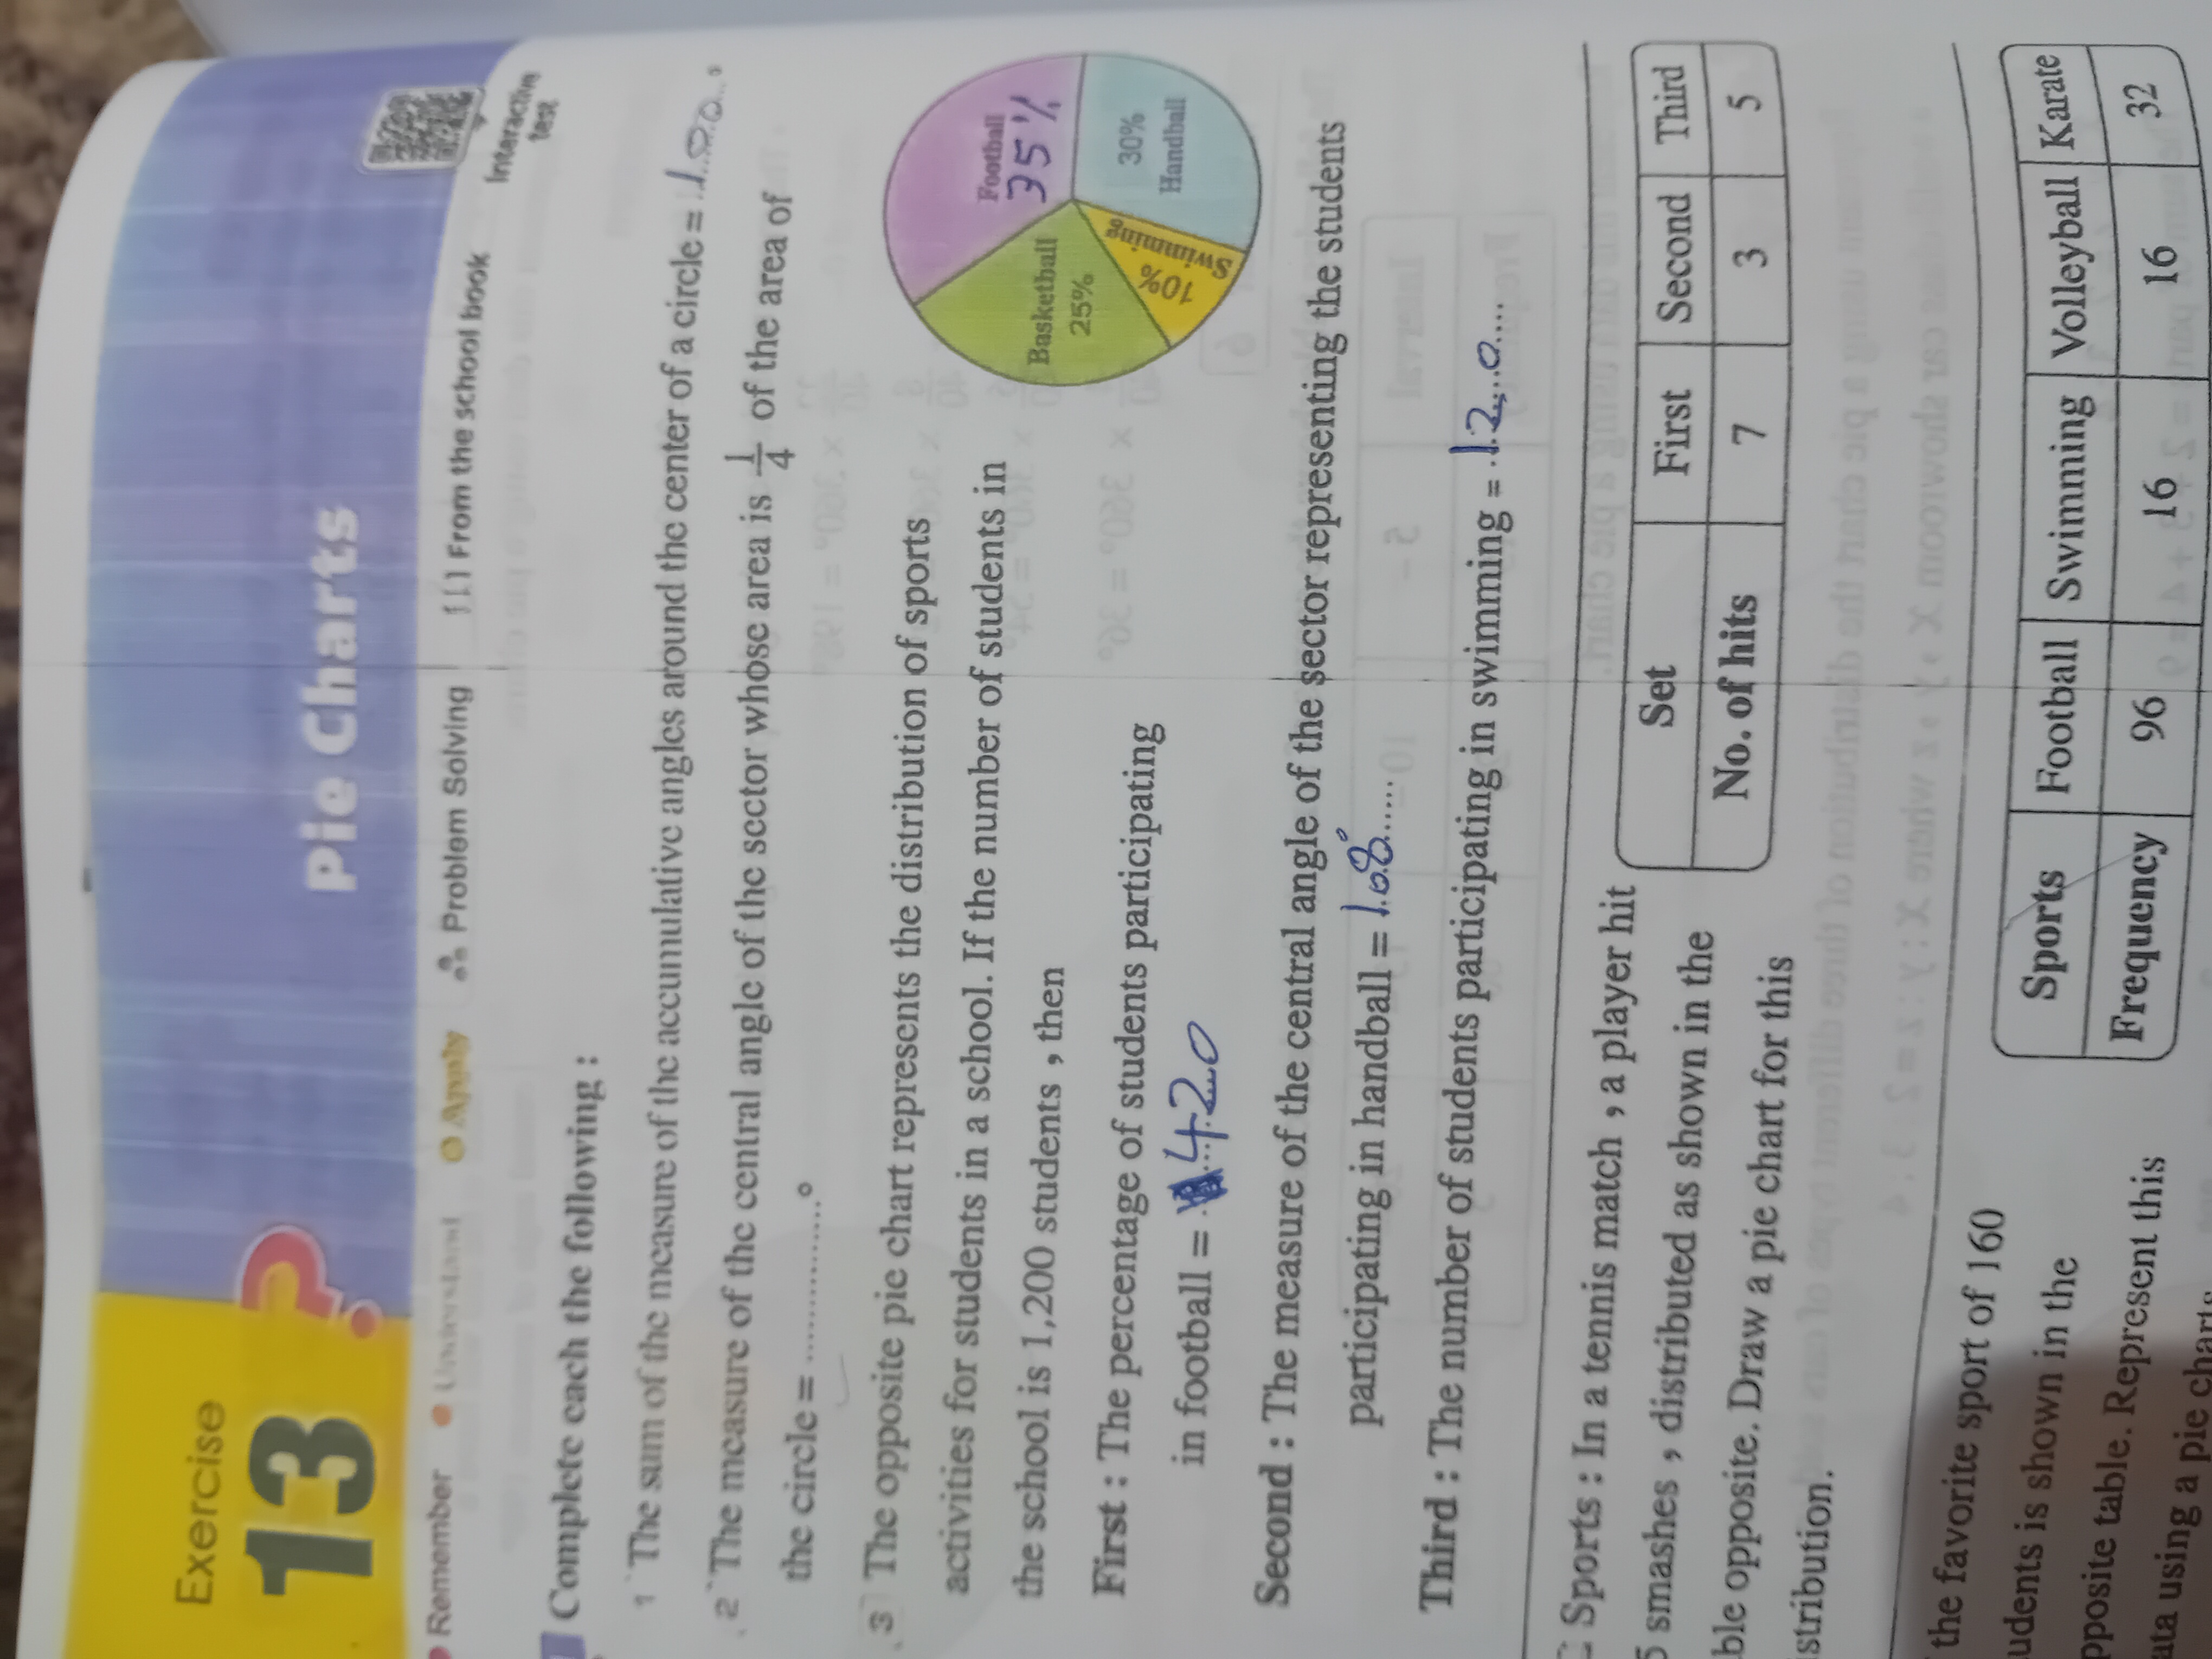 Exercise
13
Pie Charts
Remember Understand Apply Problem Solving From the school book
Interactive
test
Complete each the following :
1 The sum of the measure of the accumulative angles around the center of a circle = 100 °
2 The measure of the central angle of the sector whose area is 1/4 of the area of
the circle = ...............°
3 The opposite pie chart represents the distribution of sports
activities for students in a school. If the number of students in
the school is 1,200 students , then
First : The percentage of students participating
in football = 420
Football
35%
Basketball
25%
10%
Swimming
30%
Handball
Second : The measure of the central angle of the sector representing the students
participating in handball = 108°
Third : The number of students participating in swimming = 120
Sports : In a tennis match , a player hit
5 smashes , distributed as shown in the
ble opposite. Draw a pie chart for this
stribution.
Set First Second Third
No. of hits 7 3 5
the favorite sport of 160
udents is shown in the
pposite table. Represent this
ata using a pie charts
Sports Football Swimming Volleyball Karate
Frequency 96 16 16 32